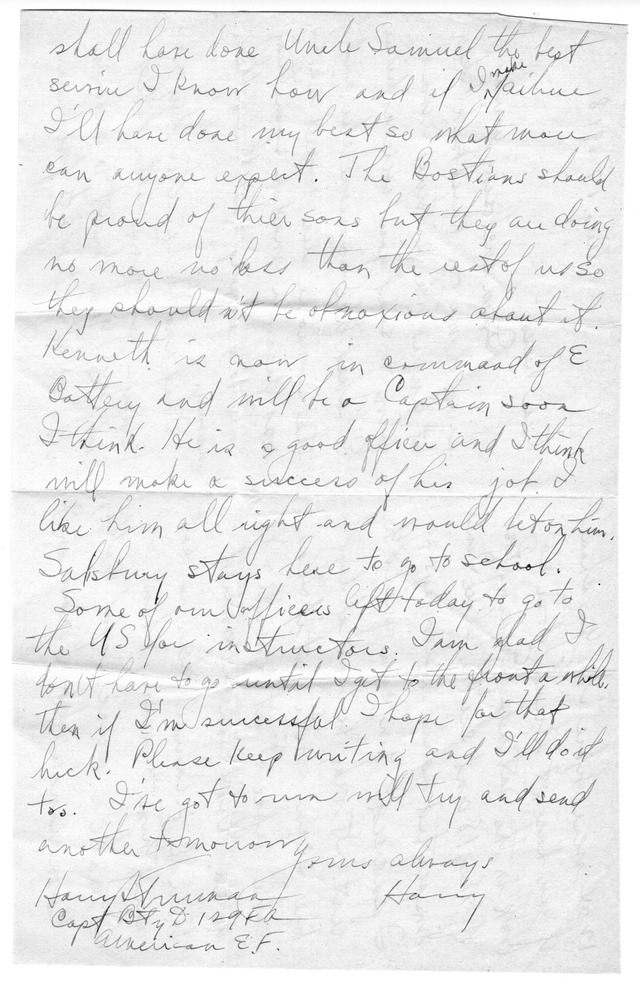 shall have done Uncle Samuel the best
service I know how and if I make failure
I'll have done my best so what more
can anyone expect. The Bostians should
be proud of thier sons but they are doing
no more no less than the rest of us so
they shouldn't be obnoxious about it.
Kenneth is now in command of E
Battery and will be a Captain soon
I think. He is a good officer and I think
will make a success of his job. I
like him all right and would bet on him.
Salsbury stays here to go to school.
Some of our officers left today to go to
the US for instructors. I am glad I
don't have to go until I get to the front a while.
then if I'm successful I hope for that
luck. Please keep writing and I'll do it
too. I've got to run will try and send
another tomorrow
Yours always
Harry
Harry S Truman
Capt Bty D 129 FA
American E.F.